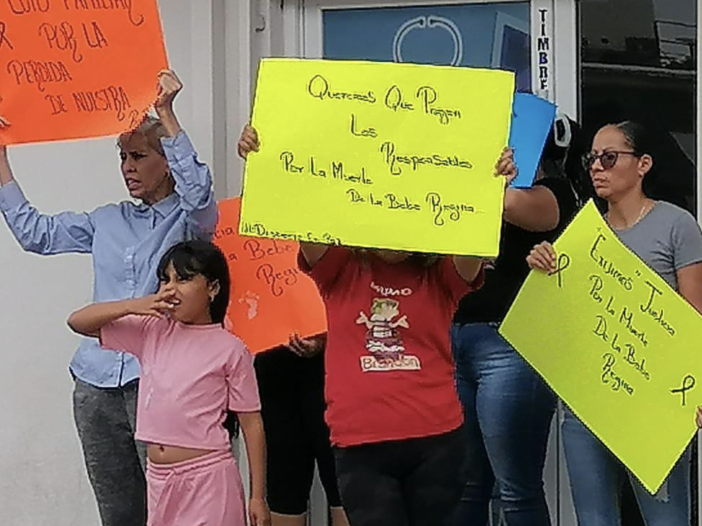 Luto Familiar
Por La
Perdida
De Nuestra
TIMBRE
Queremos Que Pagen
Los
Responsables
Por La Muerte
De La Bebe Regina
Descansa En Paz
Bebe
Regina
Exijimos Justicia
Por la Muerte
De La Bebe
Regina
Brandon